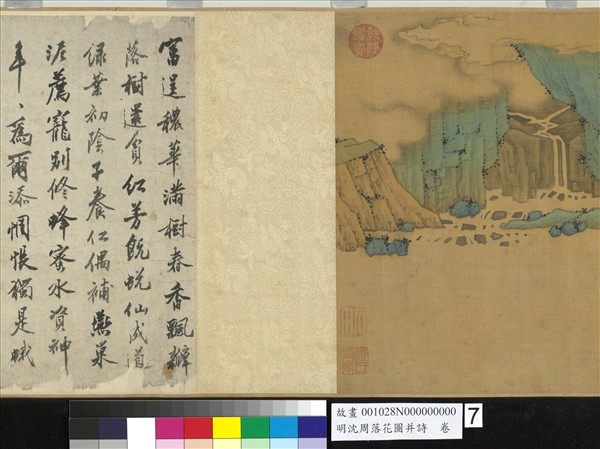 富逞穠華滿樹春香飄瓣
落樹還貧紅芳既蛻仙成道
綠葉初陰子養仁偶補燕巢
泥薦寵別修蜂蜜水資神
年〻爲爾添惆悵獨是蛾
故畫 001028N000000000
明沈周落花圖并詩 卷
7